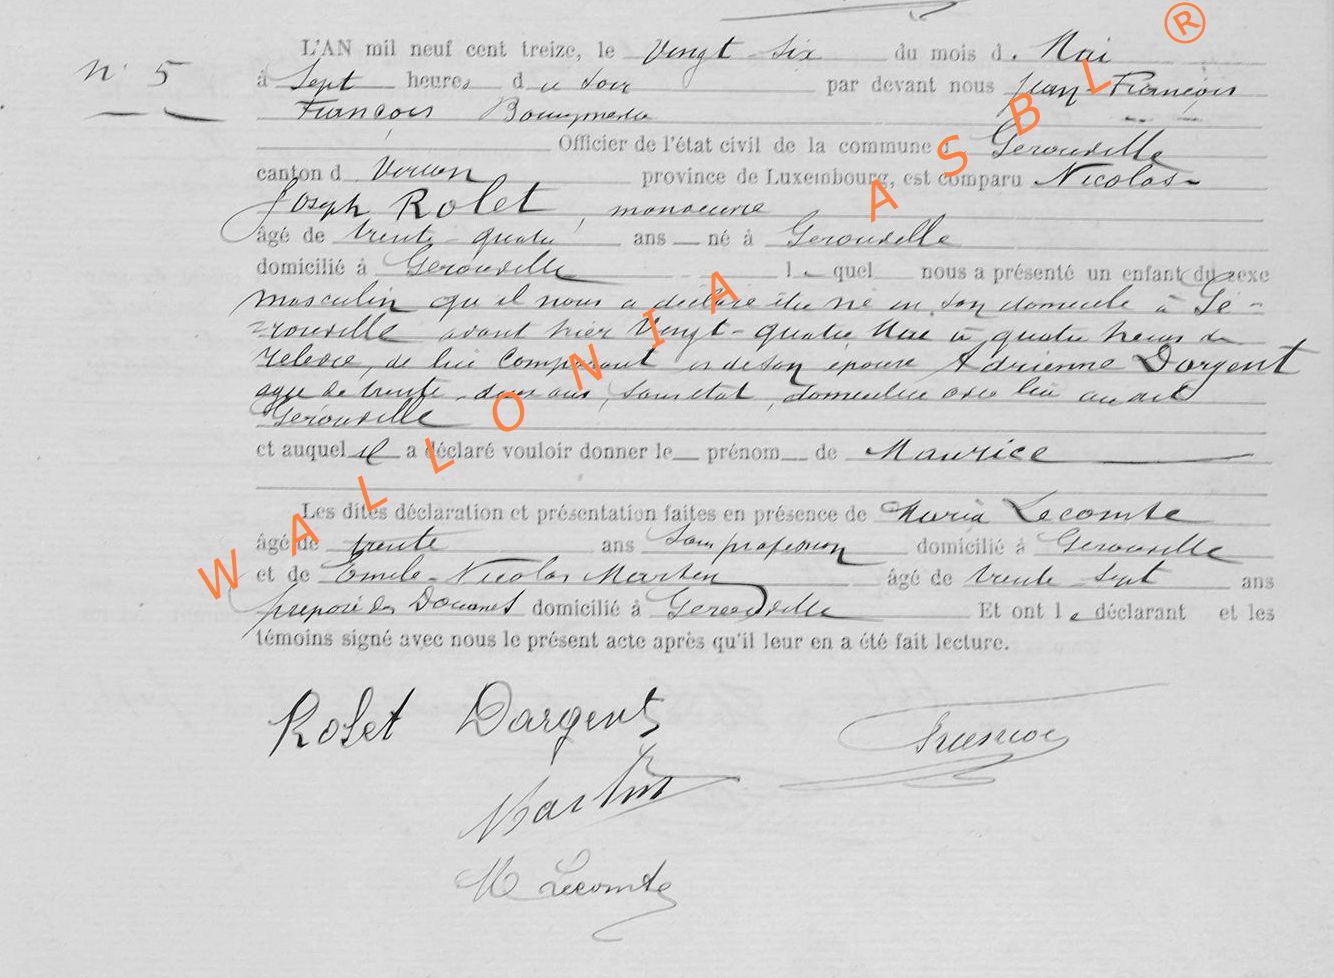 N° 5
L'AN mil neuf cent treize, le Vingt-six du mois d. Mai
à Sept heures du soir par devant nous Jean-François
François
Officier de l'état civil de la commune d Gerouville
canton d Virton province de Luxembourg, est comparu Nicolas-
Joseph Rolet, manoeuvre
âgé de trente-quatre ans né à Gerouville
domicilié à Gerouville le quel nous a présenté un enfant du sexe
masculin qu'il nous a déclaré être né en son domicile à Gé=
=rouville avant hier Vingt-quatre Mai à quatre heures de
relevée, de lui Comparant et de son épouse Adrienne Dargent
agée de trente-deux ans, sans état, domiciliée avec lui audit
Gerouville
et auquel il a déclaré vouloir donner le prénom de Maurice
Les dites déclaration et présentation faites en présence de Maria Lecomte
âgé de trente ans Sans profession domicilié à Gerouville
et de Emile-Nicolas Martin âgé de trente-sept ans
préposé des Douanes domicilié à Gerouville Et ont le déclarant et les
témoins signé avec nous le présent acte après qu'il leur en a été fait lecture.
Rolet Dargent
Martin
M Lecomte
WALLONIA ASBL ®